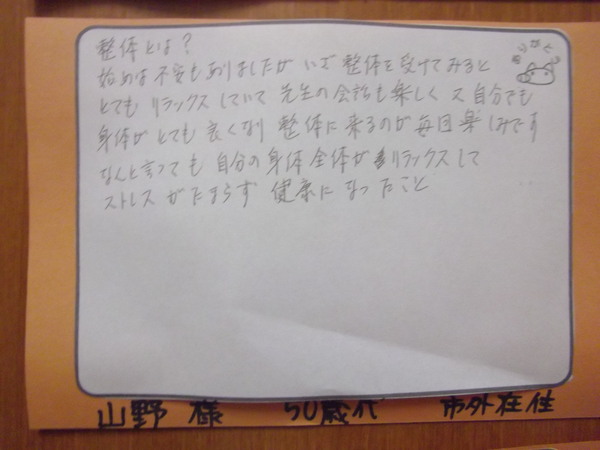 整体とは?
ありがとう
始めは不安もありましたが いざ 整体を受けてみると
とても リラックスしていて 先生の会話も楽しく 又 自分でも
身体が とても 良くなり 整体に来るのが毎回楽しみです
なんと言っても 自分の身体全体がリラックスして
ストレスがたまらず 健康になったこと
山野 様 50歳代 市外在住